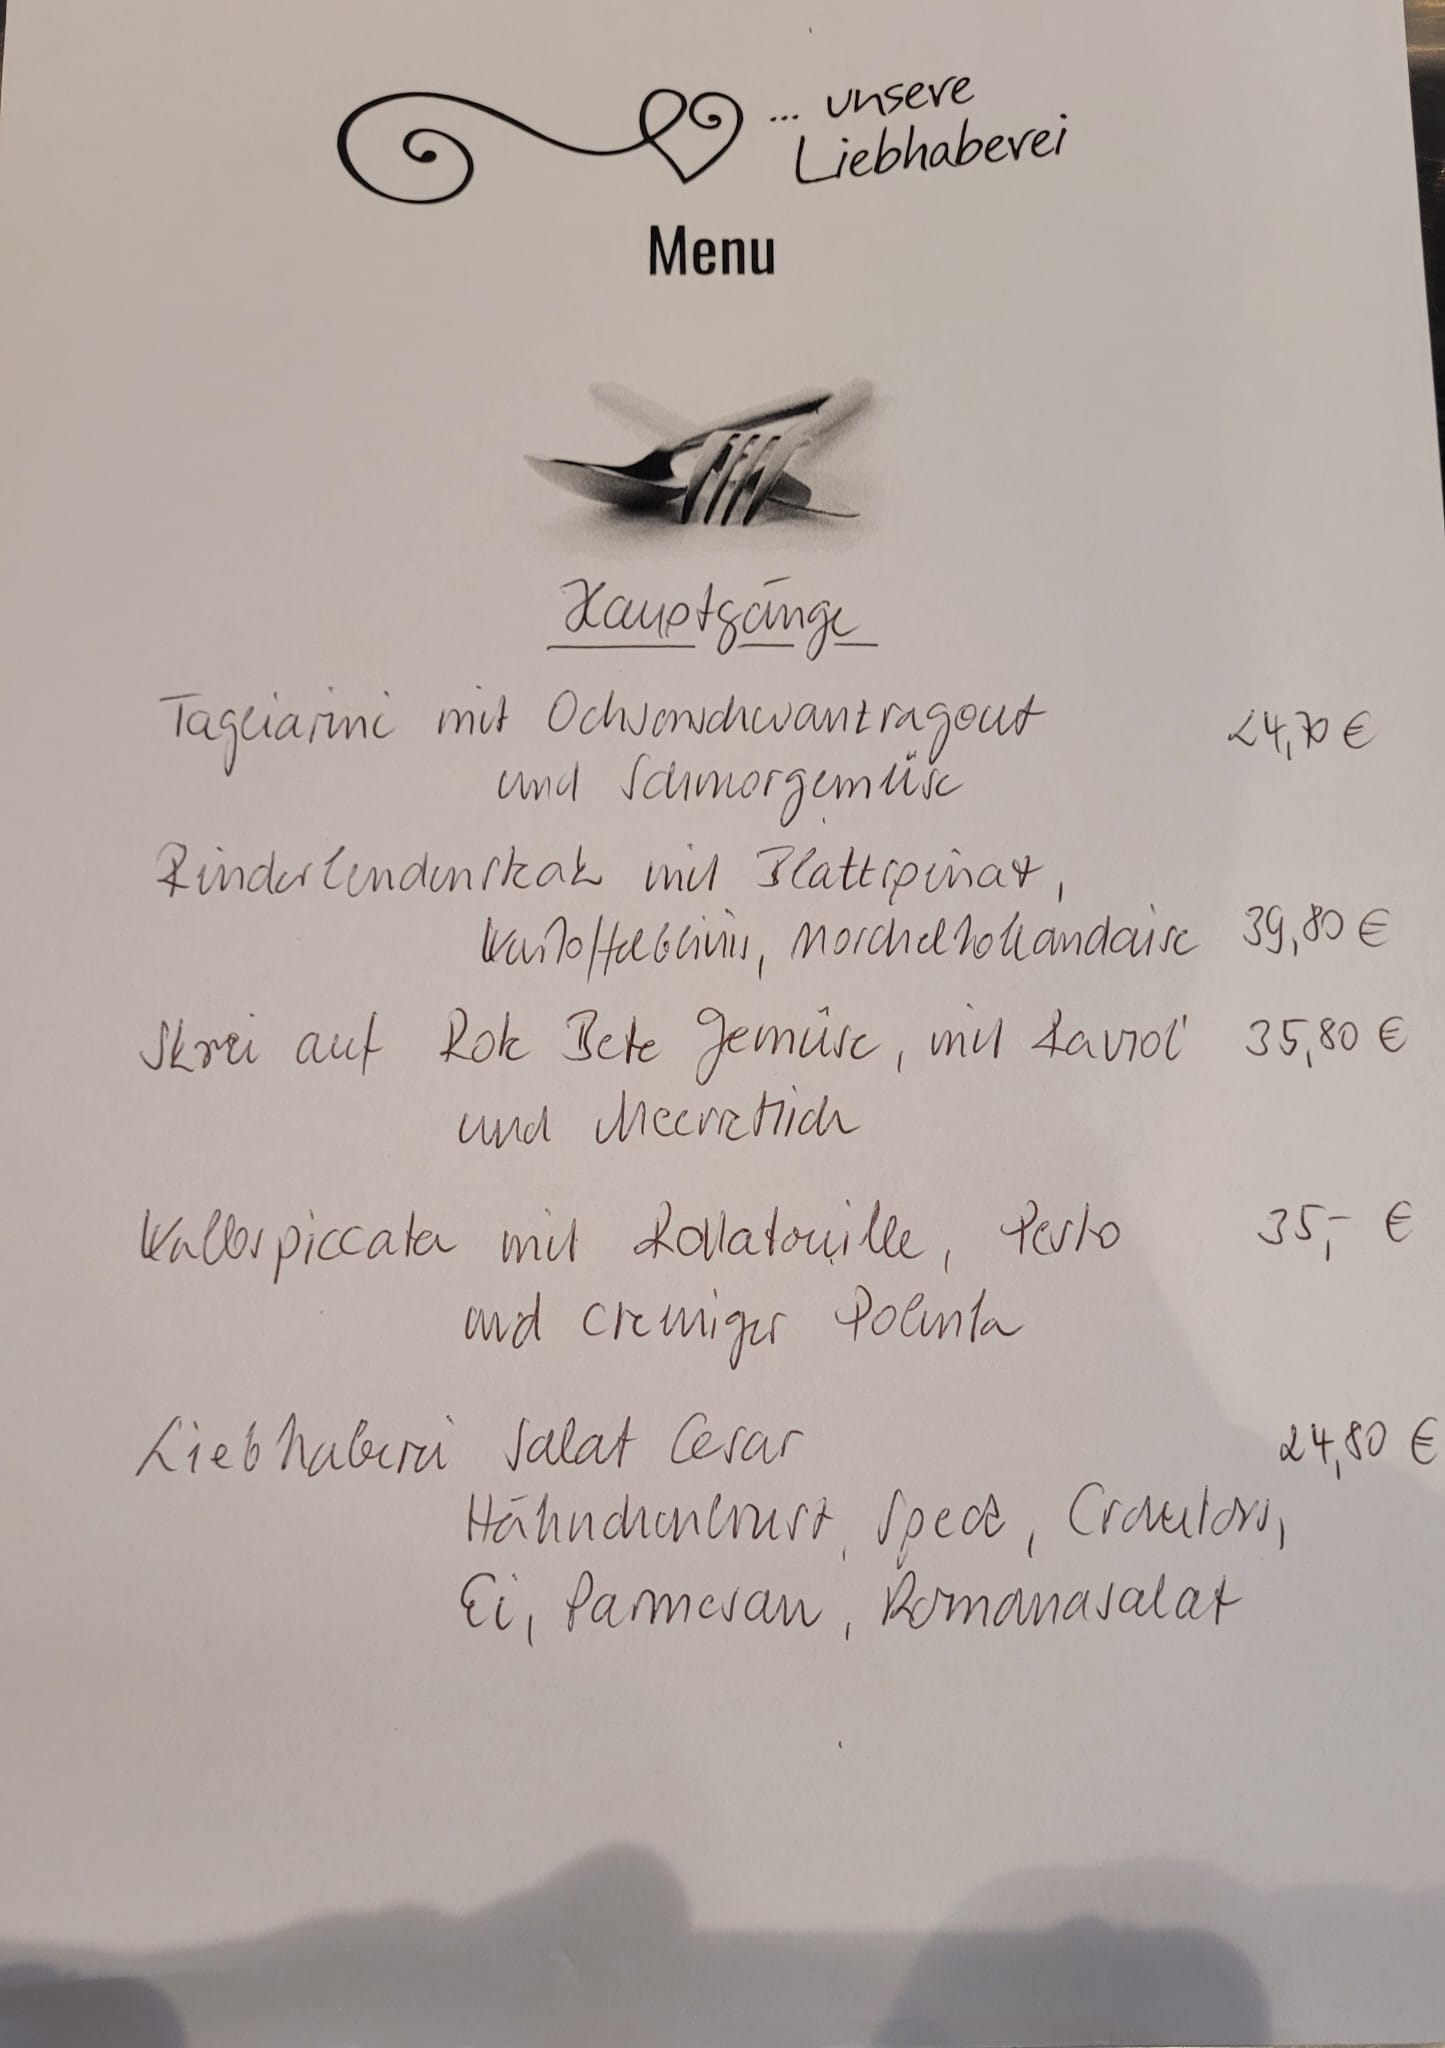 ... unsere
Liebhaberei
Menu
Hauptgänge
Tagliarini mit Ochsenschwanzragout 24,70 €
und Schmorgemüse
Rinderlendensteak mit Blattspinat,
Kartoffelblinis, Morchelhollandaise 39,80 €
Skrei auf Rote Bete Gemüse, mit Ravioli 35,80 €
und Meerrettich
Wallerpiccata mit Rollatouille, Pesto 35,- €
und cremiger Polenta
Liebhaberei Salat Cesar 24,80 €
Hähnchenbrust, Speck, Croutons,
Ei, Parmesan, Romanasalat